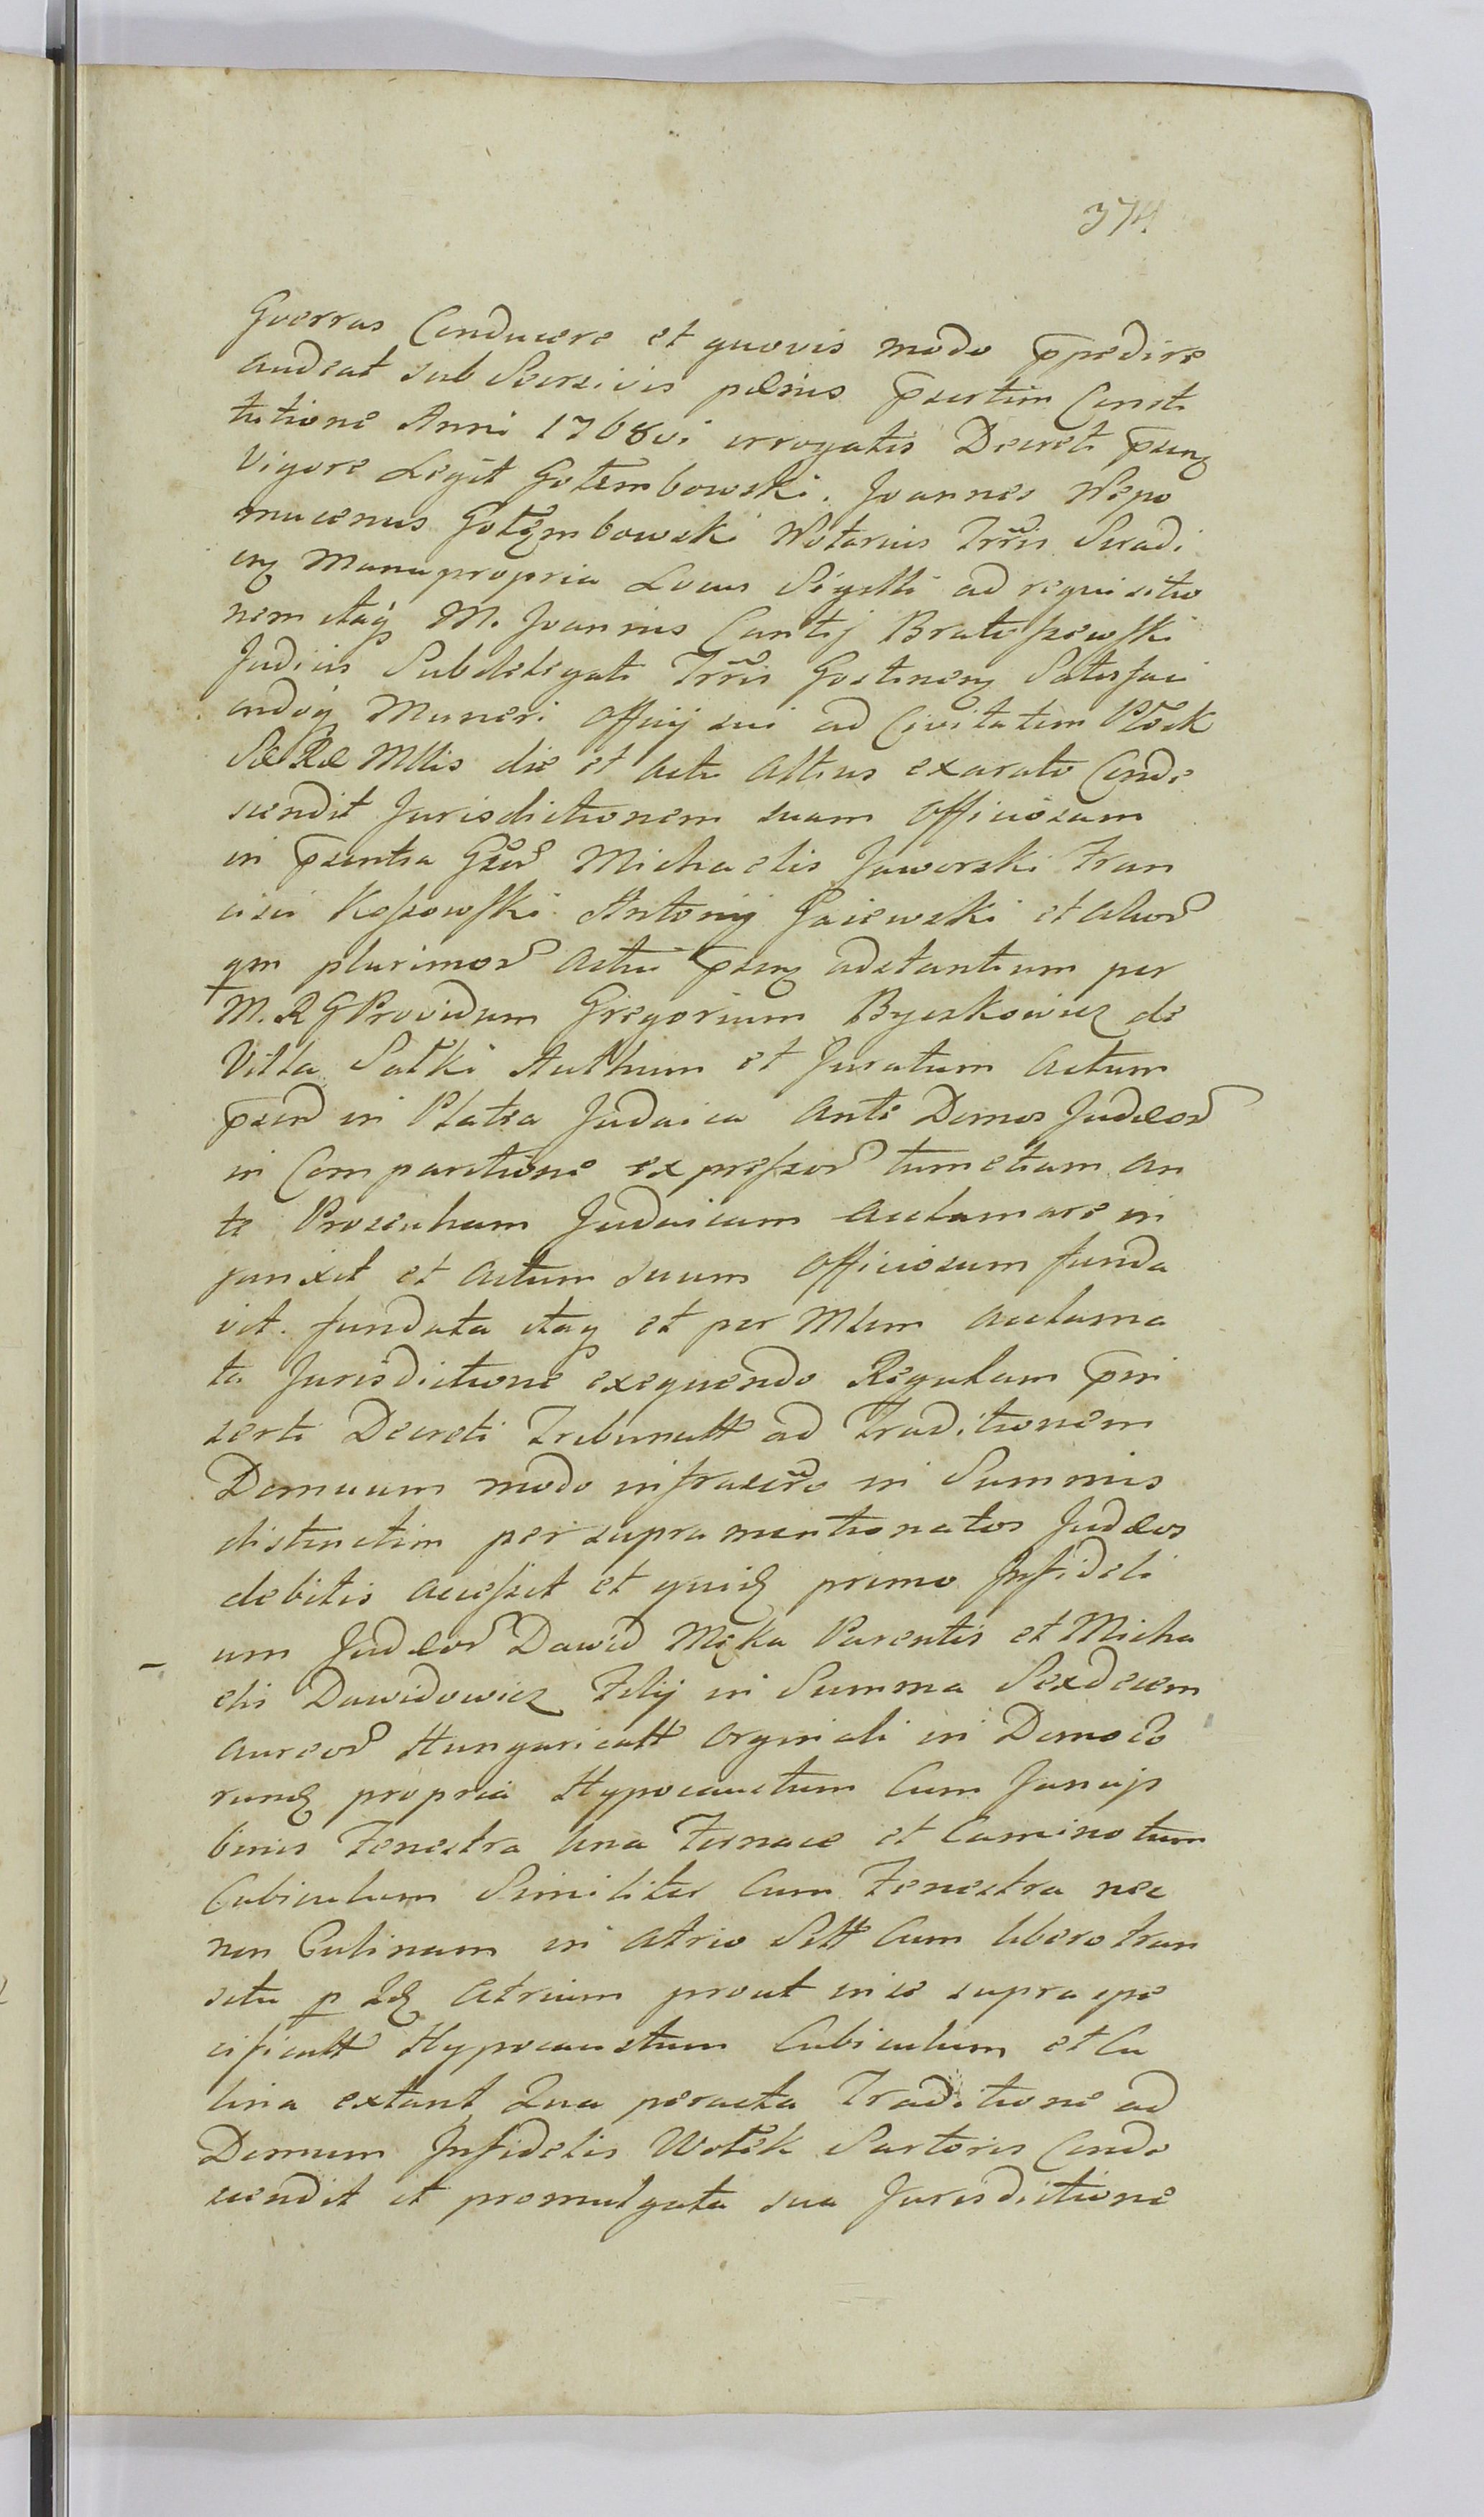 374
Guerras Conducere et quovis modo p̄pedire
audeat sub Seersivis pœnis p̄sertim Consti
tutione Anni 1768vi irrogatis Decreti p̄senę
Vigore Legit Gołembowski. Joannes Nepo
mucenus Gołembowski Notarius Trris Siradi
enę Manu propria Locus Sigilli ad requisitio
nem itaq M. Joannis Cantij Bratoszewski
Judicis Subdelegati Trris Gostinenę Satisfaci
endoq Muneri officij sui ad Civitatem Płock
SæRæMttis die et actu altius exarato Conde
scendit Jurisdictionem suam officiosam
in p̄sentia Gsor Michaelis Jaworski Fran
cisci Kossowski Antonij Gaiewski et alior
qm plurimor actui p̄senę adstantium per
M. R G Providum Gregorium Byczkowicz de
Villa Satki Authum et Juratum actum
p̄sen in Platea Judaica ante Domos Judæor
in Comparitione expressor tum etiam an
te Prozeucham Judaicam acclamare in
junxit et actum suum officiosum funda
vit. fundata itaq et per Mlem acclama
ta Jurisdictione exequendo Regulam p̄in
serti Decreti Tribunalt ad Traditionem
Domuum modo infrascro in Summis
distinctim per supra mentionatos Judæos
debitis accessit et quidę primo Infideli
um Judæor Dawid Męka Parentis et Micha
elis Dawidowicz Filij in Summa Sexdecem
aureor Hungaricalt orginali in Domo eo
rundę propria Hypocaustum Cum Januis
binis Fenestra una Fornace et Camino tum
Cubiculum Similiter Cum Fenestra nec
non Culinam in atrio Sitt Cum libero tran
situ p Idę atrium prout in eo supra spe
cificatt Hypocaustum Cubiculum et Cu
lina extant Qua peracta Traditione ad
Domum Infidelis Wolek Sartoris Conde
scendit et promulgata sua Jurisdictione